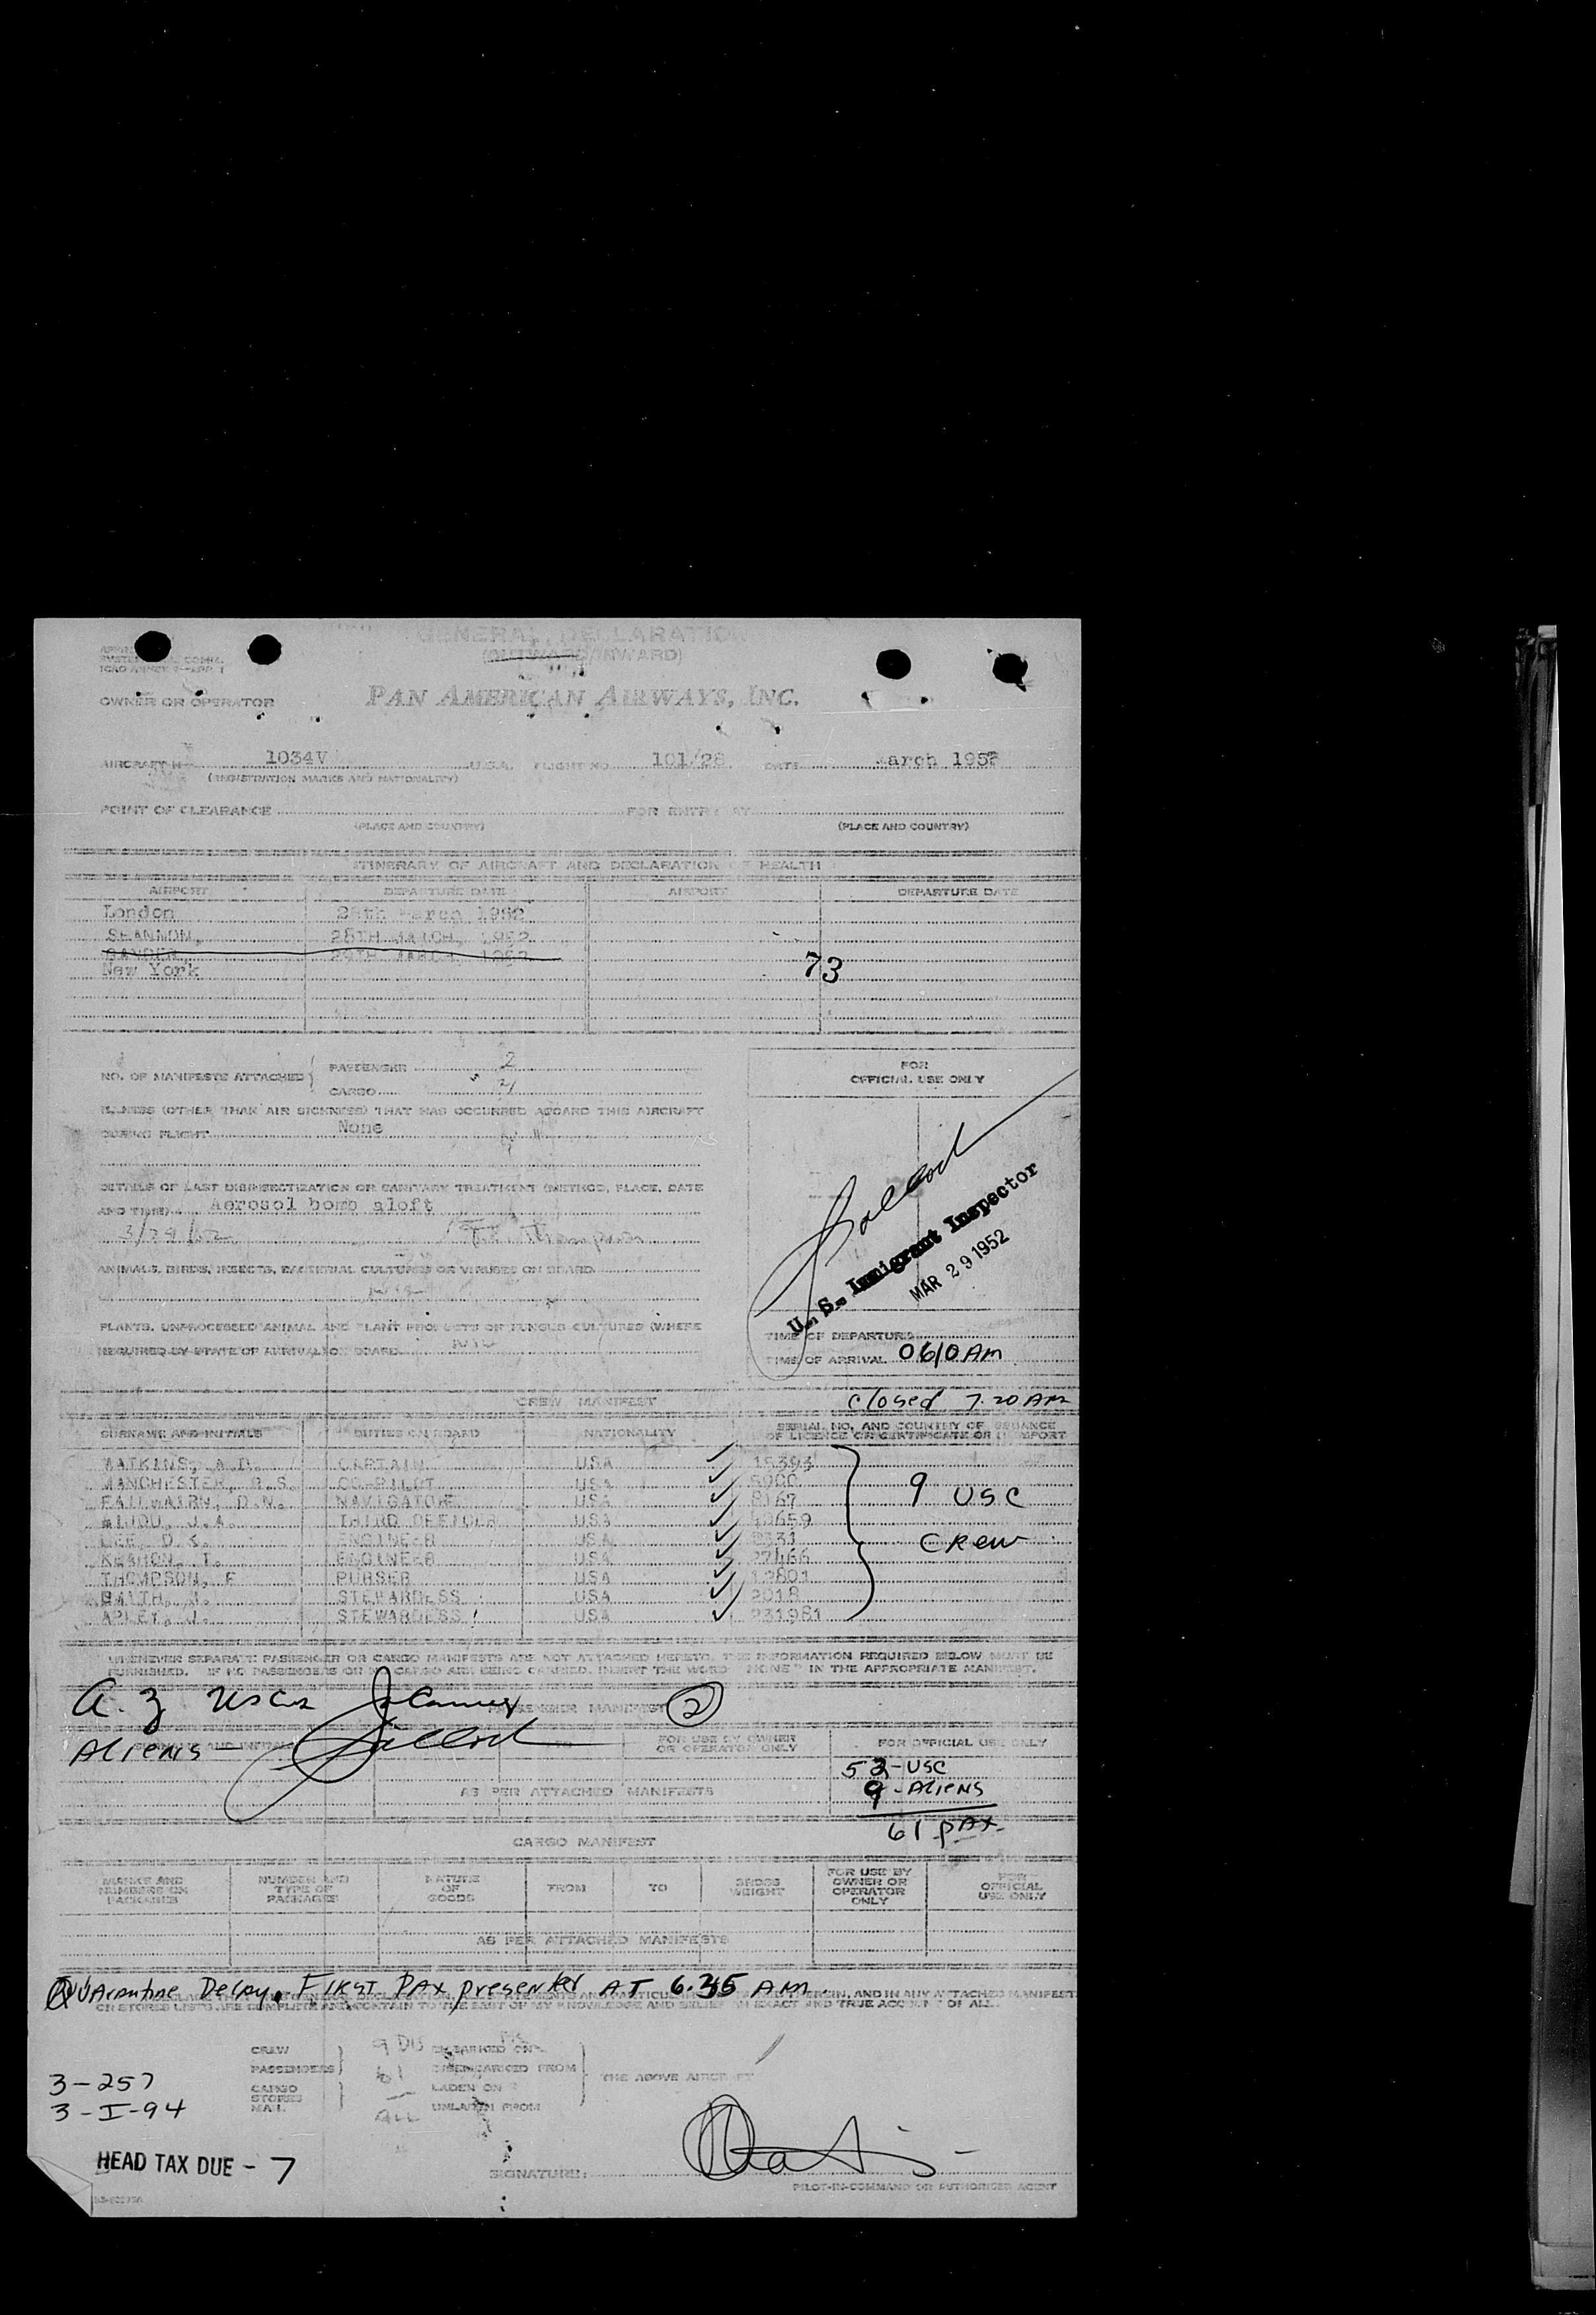 GENERAL DECLARATION
(OUTWARD/INWARD)
OWNER OR OPERATOR PAN AMERICAN AIRWAYS, INC.
AIRCRAFT 1034V U.S.A. FLIGHT NO. 101/28 DATE March 1952
(REGISTRATION MARKS AND NATIONALITY)
POINT OF CLEARANCE FOR ENTRY AT
(PLACE AND COUNTRY) (PLACE AND COUNTRY)
ITINERARY OF AIRCRAFT AND DECLARATION OF HEALTH
AIRPORT DEPARTURE DATE AIRPORT DEPARTURE DATE
London 28th March 1952
SHANNON, 28TH MARCH, 1952
GANDER 29TH MARCH 1952
New York
73
NO. OF MANIFESTS ATTACHED { PASSENGER 2
CARGO 4
FOR
OFFICIAL USE ONLY
ILLNESS (OTHER THAN AIR SICKNESS) THAT HAS OCCURRED ABOARD THIS AIRCRAFT
DURING FLIGHT None
DETAILS OF LAST DISINSECTIZATION OR SANITARY TREATMENT (METHOD, PLACE, DATE
AND TIME) Aerosol bomb aloft
3/29/52
ANIMALS, BIRDS, INSECTS, BACTERIAL CULTURES OR VIRUSES ON BOARD
PLANTS, UNPROCESSED ANIMAL AND PLANT PRODUCTS OR FUNGUS CULTURES (WHERE
REQUIRED BY STATE OF ARRIVAL) ON BOARD
U. S. Immigrant Inspector
MAR 29 1952
TIME OF DEPARTURE
TIME OF ARRIVAL 0610 AM
Closed 7.20 AM
CREW MANIFEST
SURNAME AND INITIALS DUTIES ON BOARD NATIONALITY SERIAL NO. AND COUNTRY OF ISSUANCE
OF LICENCE OR CERTIFICATE OR PASSPORT
WATKINS, A.D. CAPTAIN USA 15393
MANCHESTER, B.S. CO-PILOT USA 5900
FAIRBAIRN, D.N. NAVIGATOR USA 8167
J.A. THIRD OFFICER USA 40659
LEE, D.K. ENGINEER USA 8331
KEARON, T. ENGINEER USA 27466
THOMPSON, F PURSER USA 12801
STEWARDESS USA 2018
APLEY, J. STEWARDESS USA 231981
9 USC
Crew
WHENEVER SEPARATE PASSENGER OR CARGO MANIFESTS ARE NOT ATTACHED HERETO, THE INFORMATION REQUIRED BELOW MUST BE
FURNISHED. IF NO PASSENGERS OR NO CARGO ARE BEING CARRIED, INSERT THE WORD "NONE" IN THE APPROPRIATE MANIFEST.
PASSENGER MANIFEST 2
Aliens -
SURNAME AND INITIALS TO FOR USE BY OWNER
OR OPERATOR ONLY
FOR OFFICIAL USE ONLY
52 - USC
9 - Aliens
61 pax
AS PER ATTACHED MANIFESTS
CARGO MANIFEST
MARKS AND
NUMBERS ON
PACKAGES
NUMBER AND
TYPE OF
PACKAGES
NATURE
OF
GOODS
FROM TO GROSS
WEIGHT
FOR USE BY
OWNER OR
OPERATOR
ONLY
FOR
OFFICIAL
USE ONLY
AS PER ATTACHED MANIFESTS
Quarantine Delay. First Pax presented AT 6.35 AM.
OR STORES LISTS ARE COMPLETE AND CONTAIN TO THE BEST OF MY KNOWLEDGE AND BELIEF AN EXACT AND TRUE ACCOUNT OF ALL.
CREW 9 EMBARKED ON
PASSENGERS 61 DISEMBARKED FROM
CARGO LADEN ON
STORES
MAIL ALL UNLADEN FROM
THE ABOVE AIRCRAFT
3-257
3-I-94
HEAD TAX DUE - 7
SIGNATURE:
PILOT-IN-COMMAND OR AUTHORISED AGENT